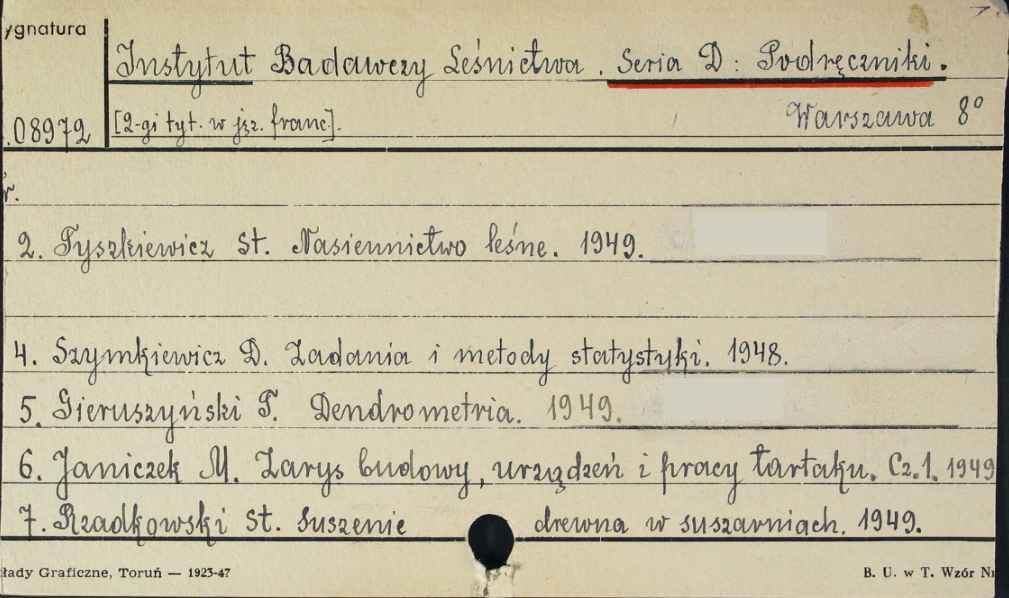 ygnatura
Instytut Badawczy Leśnictwa. Seria D: Podręczniki.
.08972 [2-gi tyt. w jęz. franc]. Warszawa 8°
r.
2. Tyszkiewicz St. Nasiennictwo leśne. 1949.
4. Szymkiewicz D. Zadania i metody statystyki. 1948.
5. Gieruszyński T. Dendrometria. 1949.
6. Janiczek M. Zarys budowy, urządzeń i pracy tartaku. Cz.1. 1949
7. Rzadkowski St. Suszenie drewna w suszarniach. 1949.
łady Graficzne, Toruń — 1923-47 B. U. w T. Wzór Nr